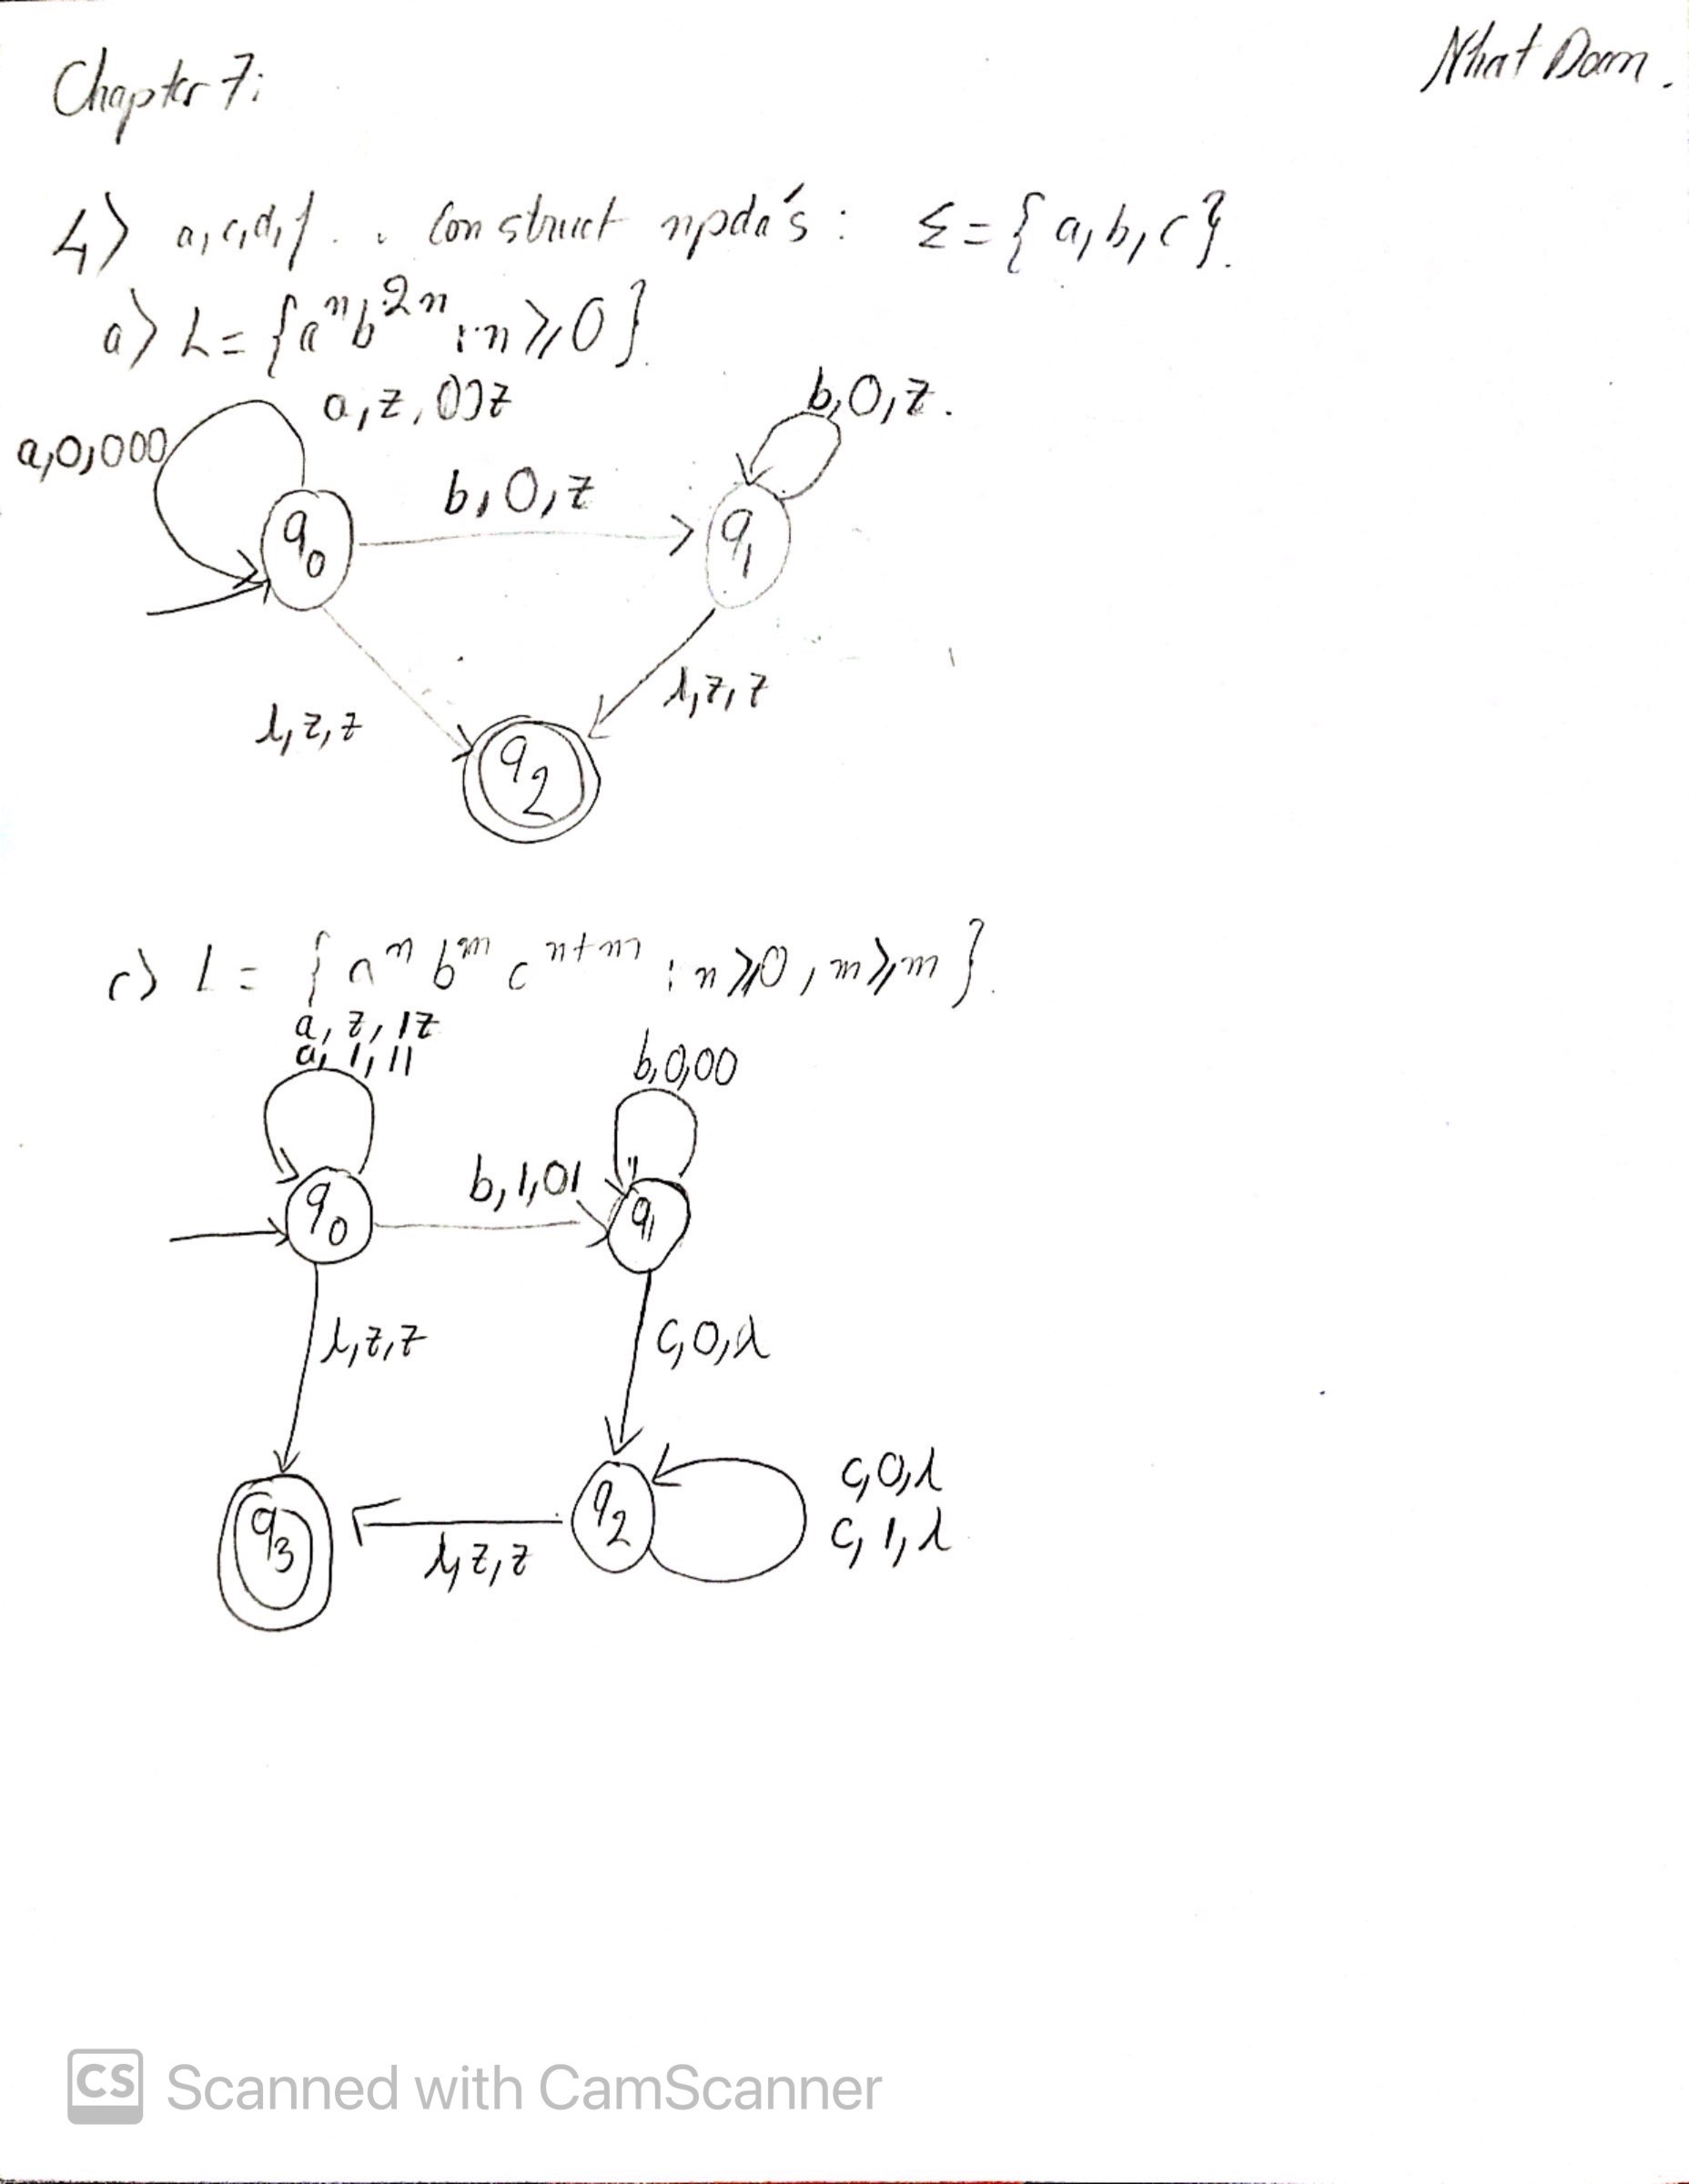 Chapter 7:
Nhat Doan.
4) a, c, d, f . . Construct npda's : Σ = {a, b, c}.
a) L = {aⁿb²ⁿ : n ≥ 0}.
a, z, 00z
b, 0, z.
a, 0, 000
b, 0, z
q₀
q₁
λ, z, z
λ, z, z
q₂
c) L = {aⁿ bᵐ cⁿ⁺ᵐ : n ≥ 0, m ≥ m}.
a, z, 1z
a, 1, 11
b, 0, 00
b, 1, 01
q₀
q₁
λ, z, z
c, 0, λ
c, 0, λ
c, 1, λ
q₃
q₂
λ, z, z
CS Scanned with CamScanner